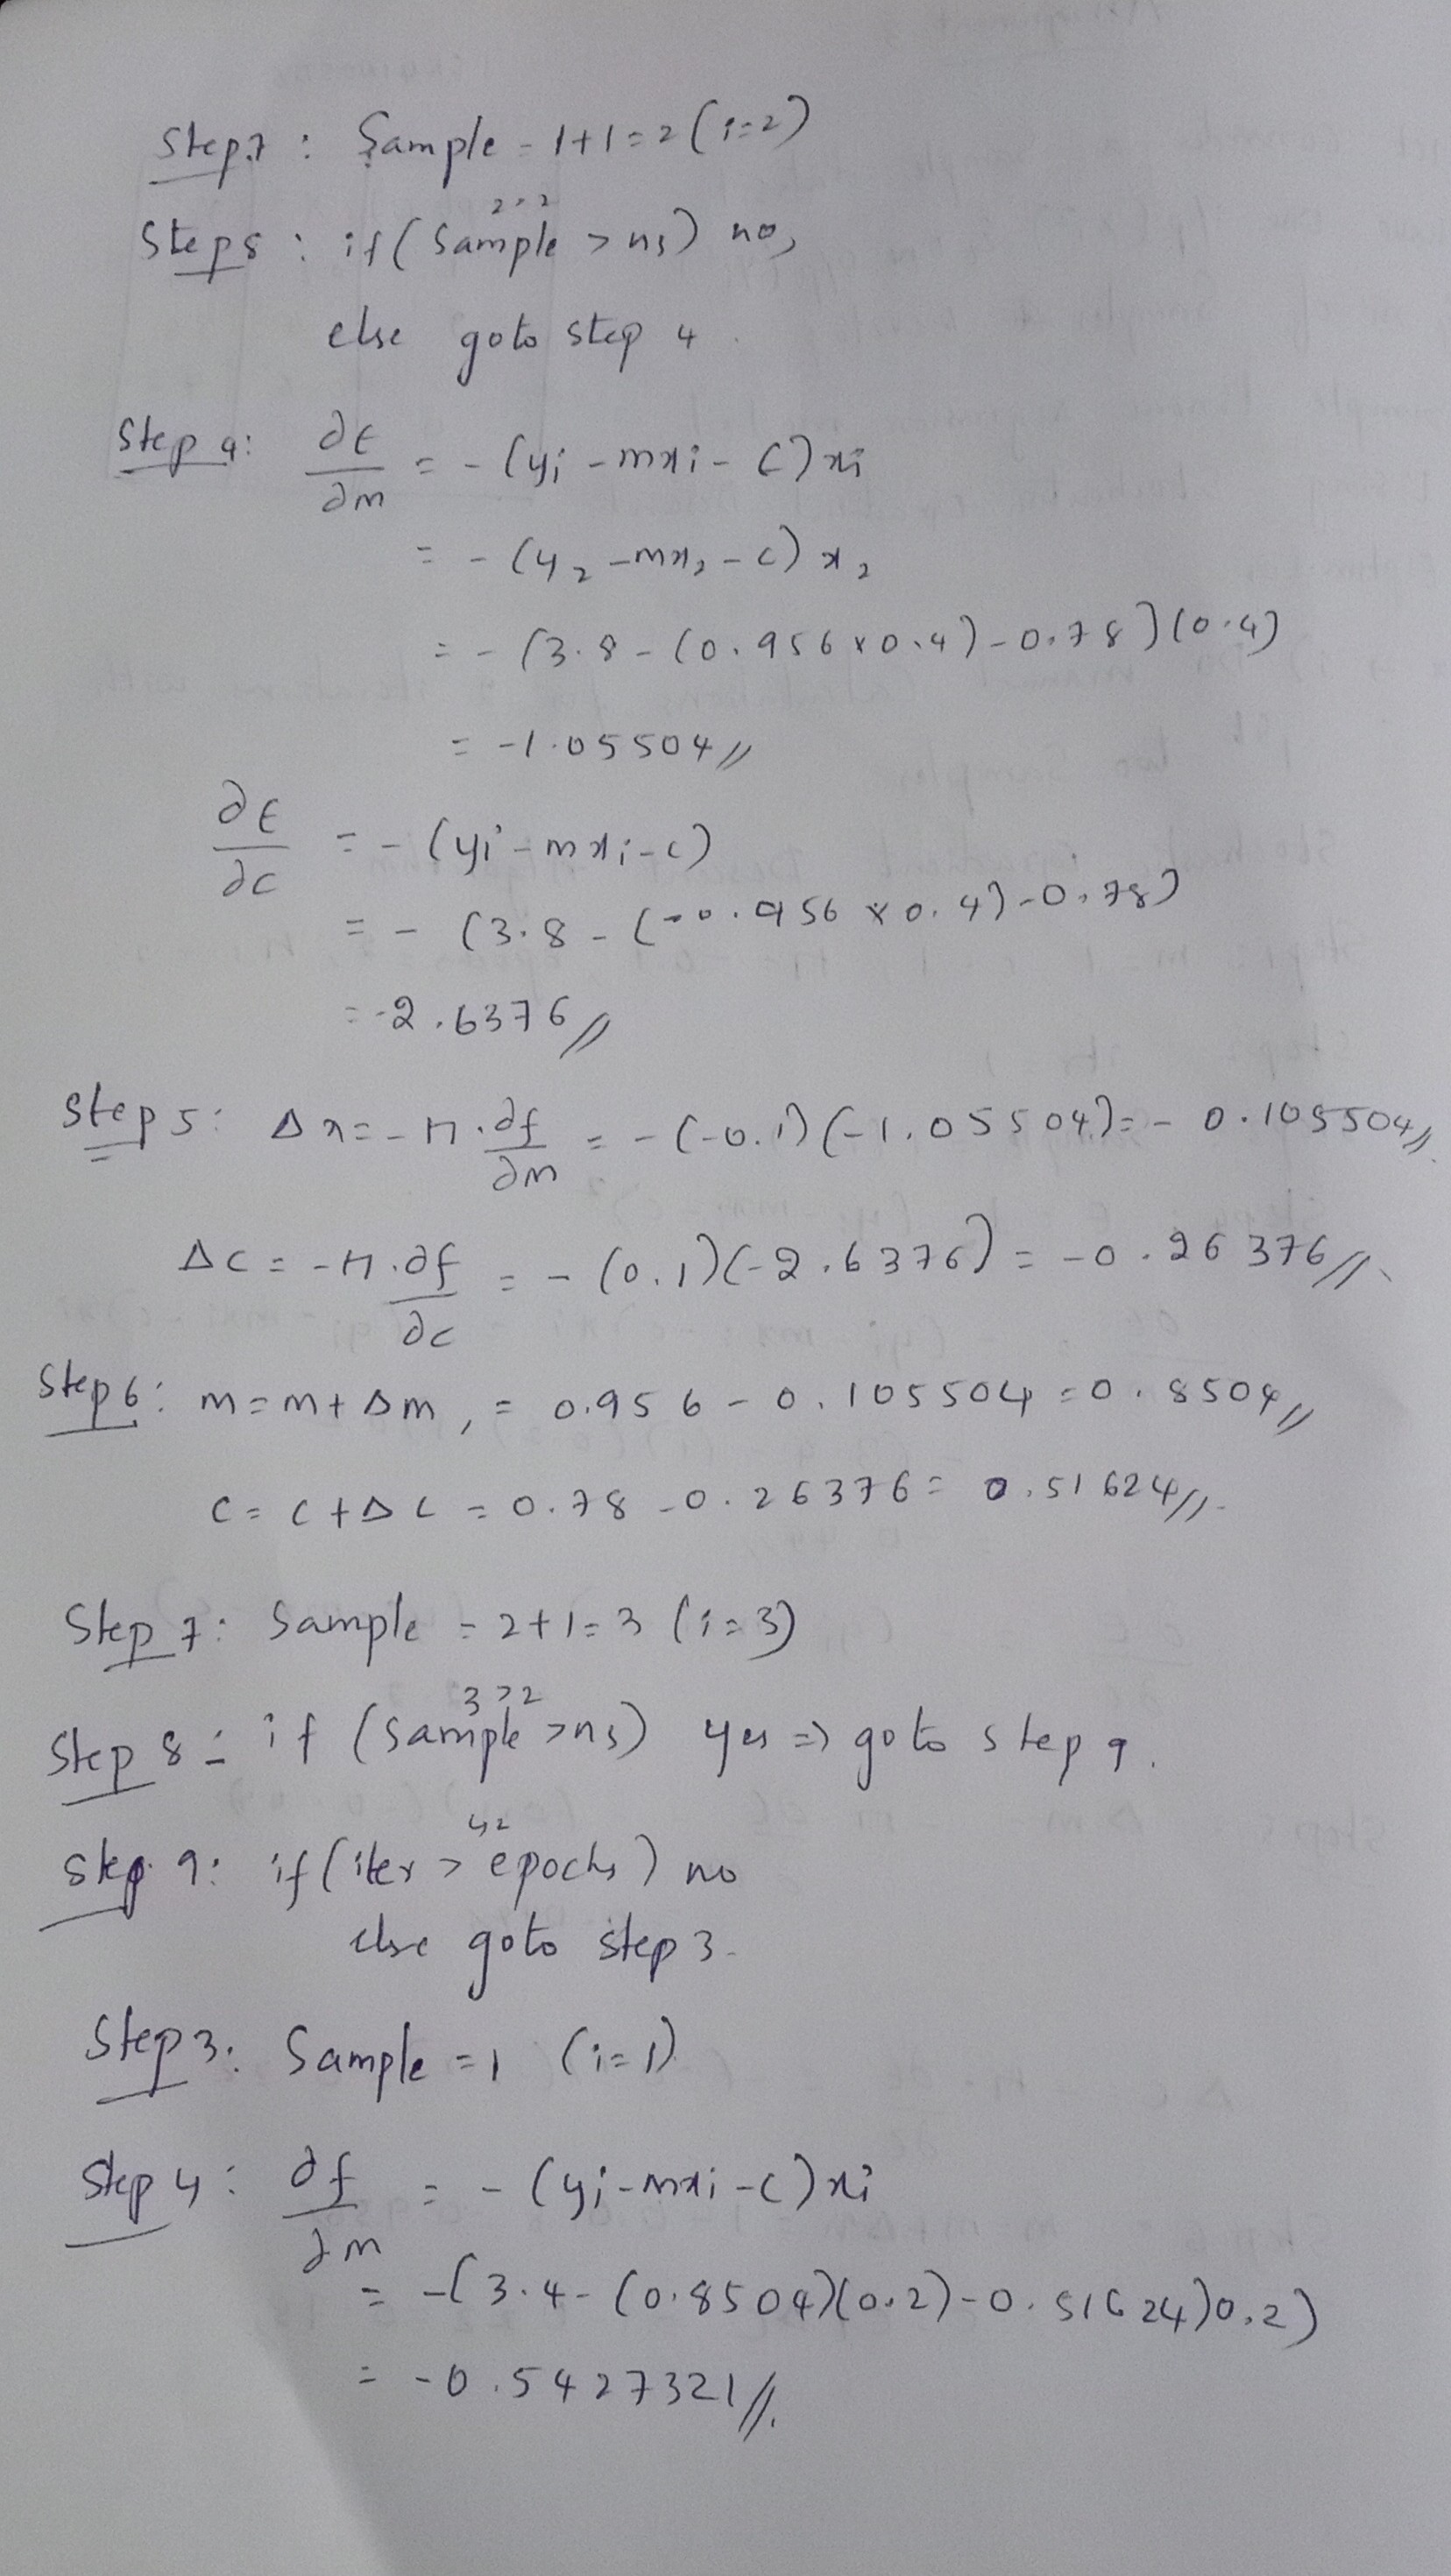 Step 7 : Sample = 1+1=2 (i=2)
2>2
Step 8 : if (Sample > ns) no,
else goto step 4.
Step 4: ∂E/∂m = - (yi - mxi - c) xi
= - (y2 - mx2 - c) x2
= - (3.8 - (0.956 x 0.4) - 0.78) (0.4)
= -1.05504 //
∂E/∂c = - (yi - mxi - c)
= - (3.8 - (-0.956 x 0.4) - 0.78)
= -2.6376 //
Step 5: Δx = - η. ∂f/∂m = - (-0.1) (-1.05504) = - 0.105504 //.
Δc = - η. ∂f/∂c = - (0.1) (-2.6376) = -0.26376 //.
Step 6: m = m + Δm, = 0.956 - 0.105504 = 0.8504 //
c = c + Δc = 0.78 - 0.26376 = 0.51624 //.
Step 7: Sample = 2+1=3 (i=3)
3>2
Step 8 : if (sample > ns) yes => goto step 9.
Step 9: if (iter > epochs) no
else goto step 3.
Step 3: Sample = 1 (i=1)
Step 4 : ∂f/∂m = - (yi - mxi - c) xi
= -(3.4 - (0.8504)(0.2) - 0.51624)0.2)
= -0.5427321 //.